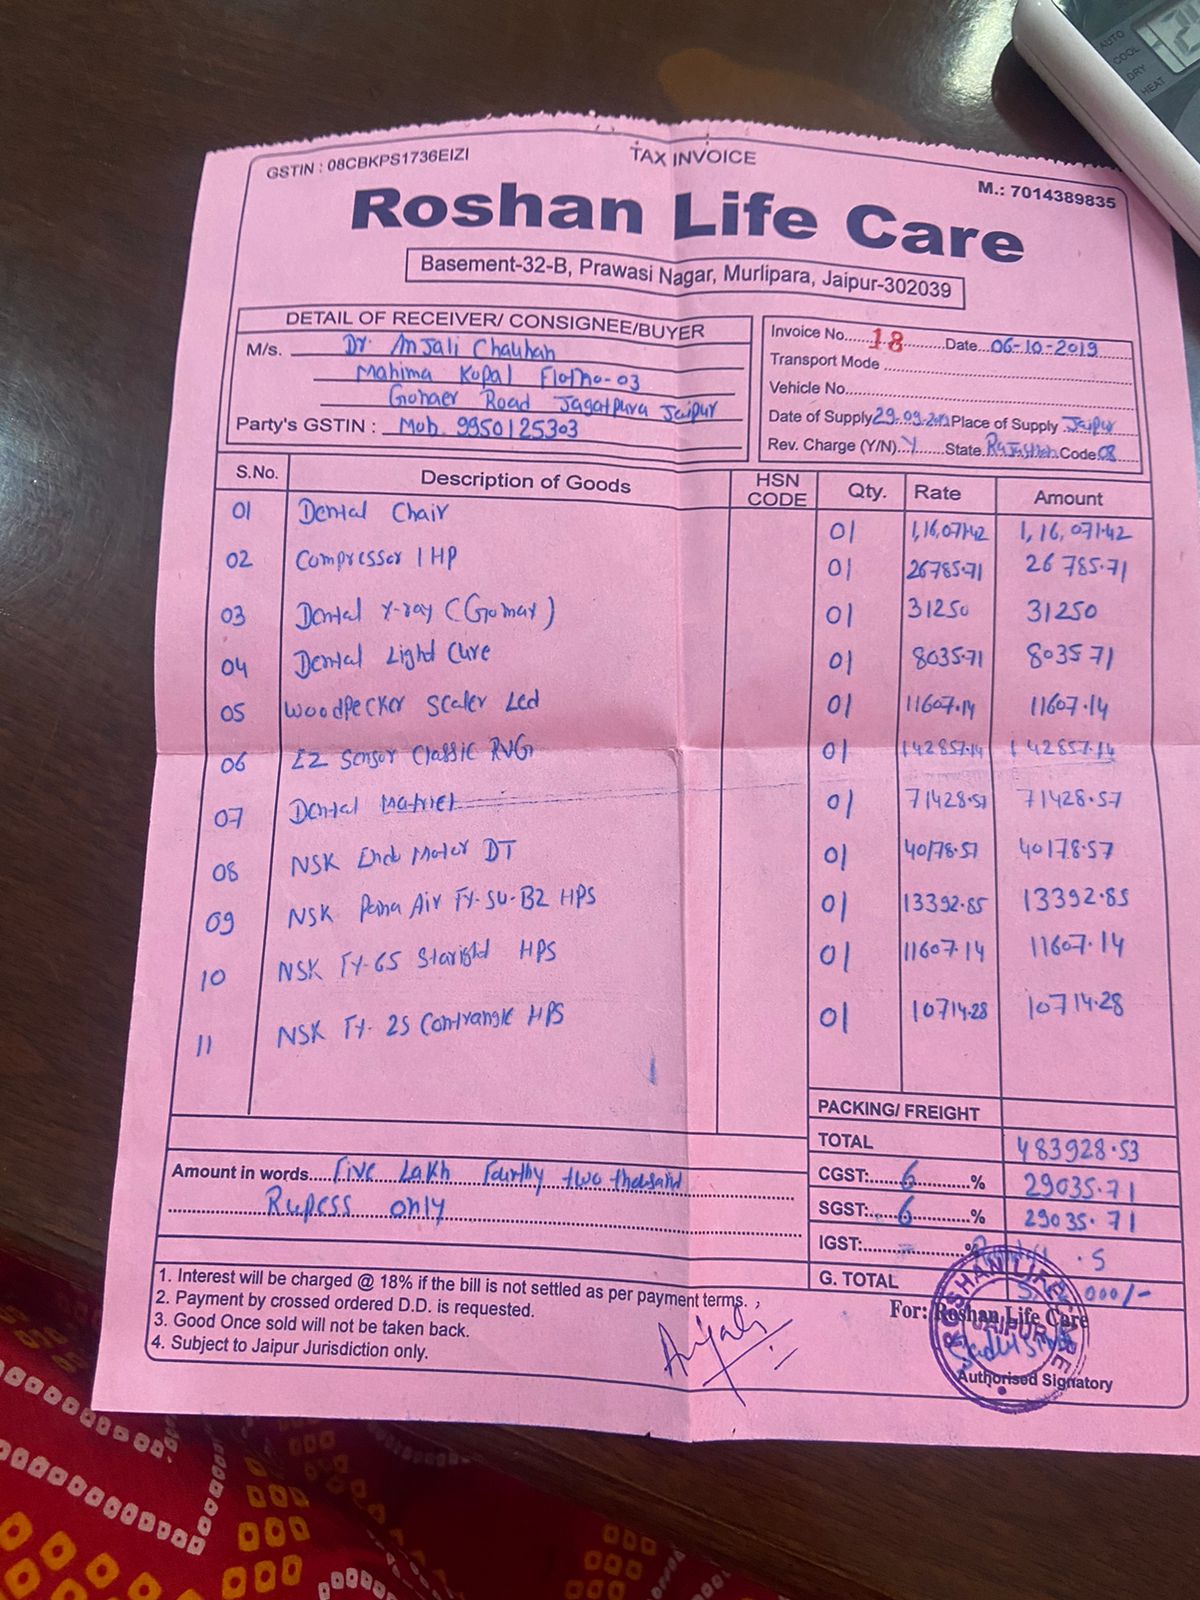 GSTIN : 08CBKPS1736EIZI
TAX INVOICE
M.: 7014389835
Roshan Life Care
Basement-32-B, Prawasi Nagar, Murlipara, Jaipur-302039
DETAIL OF RECEIVER/ CONSIGNEE/BUYER
M/s. Dr. Anjali Chauhan
Mahima Kopal Flatno-03
Gonaer Road Jagatpura Jaipur
Party's GSTIN : Mob. 9950125303
Invoice No. 18 Date 06-10-2019
Transport Mode
Vehicle No.
Date of Supply 29-09- Place of Supply Jaipur
Rev. Charge (Y/N) Y State Code 08
S.No. Description of Goods HSN CODE Qty. Rate Amount
01 Dental Chair 01 1,16,071.42 1,16,071.42
02 Compressor 1 HP 01 26785.71 26785.71
03 Dental X-ray (Gomax) 01 31250 31250
04 Dental Light Cure 01 8035.71 8035.71
05 Woodpecker Scaler Led 01 11607.14 11607.14
06 EZ Sensor Classic RVG 01 142857.14 142857.14
07 Dental Matriel 01 71428.57 71428.57
08 NSK Endo Motor DT 01 40178.57 40178.57
09 NSK Pana Air FX-SU-B2 HPS 01 13392.85 13392.85
10 NSK FX-65 HPS 01 11607.14 11607.14
11 NSK FX-25 Contrangle HPS 01 10714.28 10714.28
PACKING/ FREIGHT
TOTAL 483928.53
Amount in words Five Lakh Fourthy two thousand
Rupess only
CGST: 6 % 29035.71
SGST: 6 % 29035.71
IGST: % .5
G. TOTAL 000/-
1. Interest will be charged @ 18% if the bill is not settled as per payment terms.
2. Payment by crossed ordered D.D. is requested.
3. Good Once sold will not be taken back.
4. Subject to Jaipur Jurisdiction only.
Anjali
For: Roshan Life Care
ROSHAN LIFE CARE
JAIPUR
Authorised Signatory
AUTO
COOL
DRY
HEAT